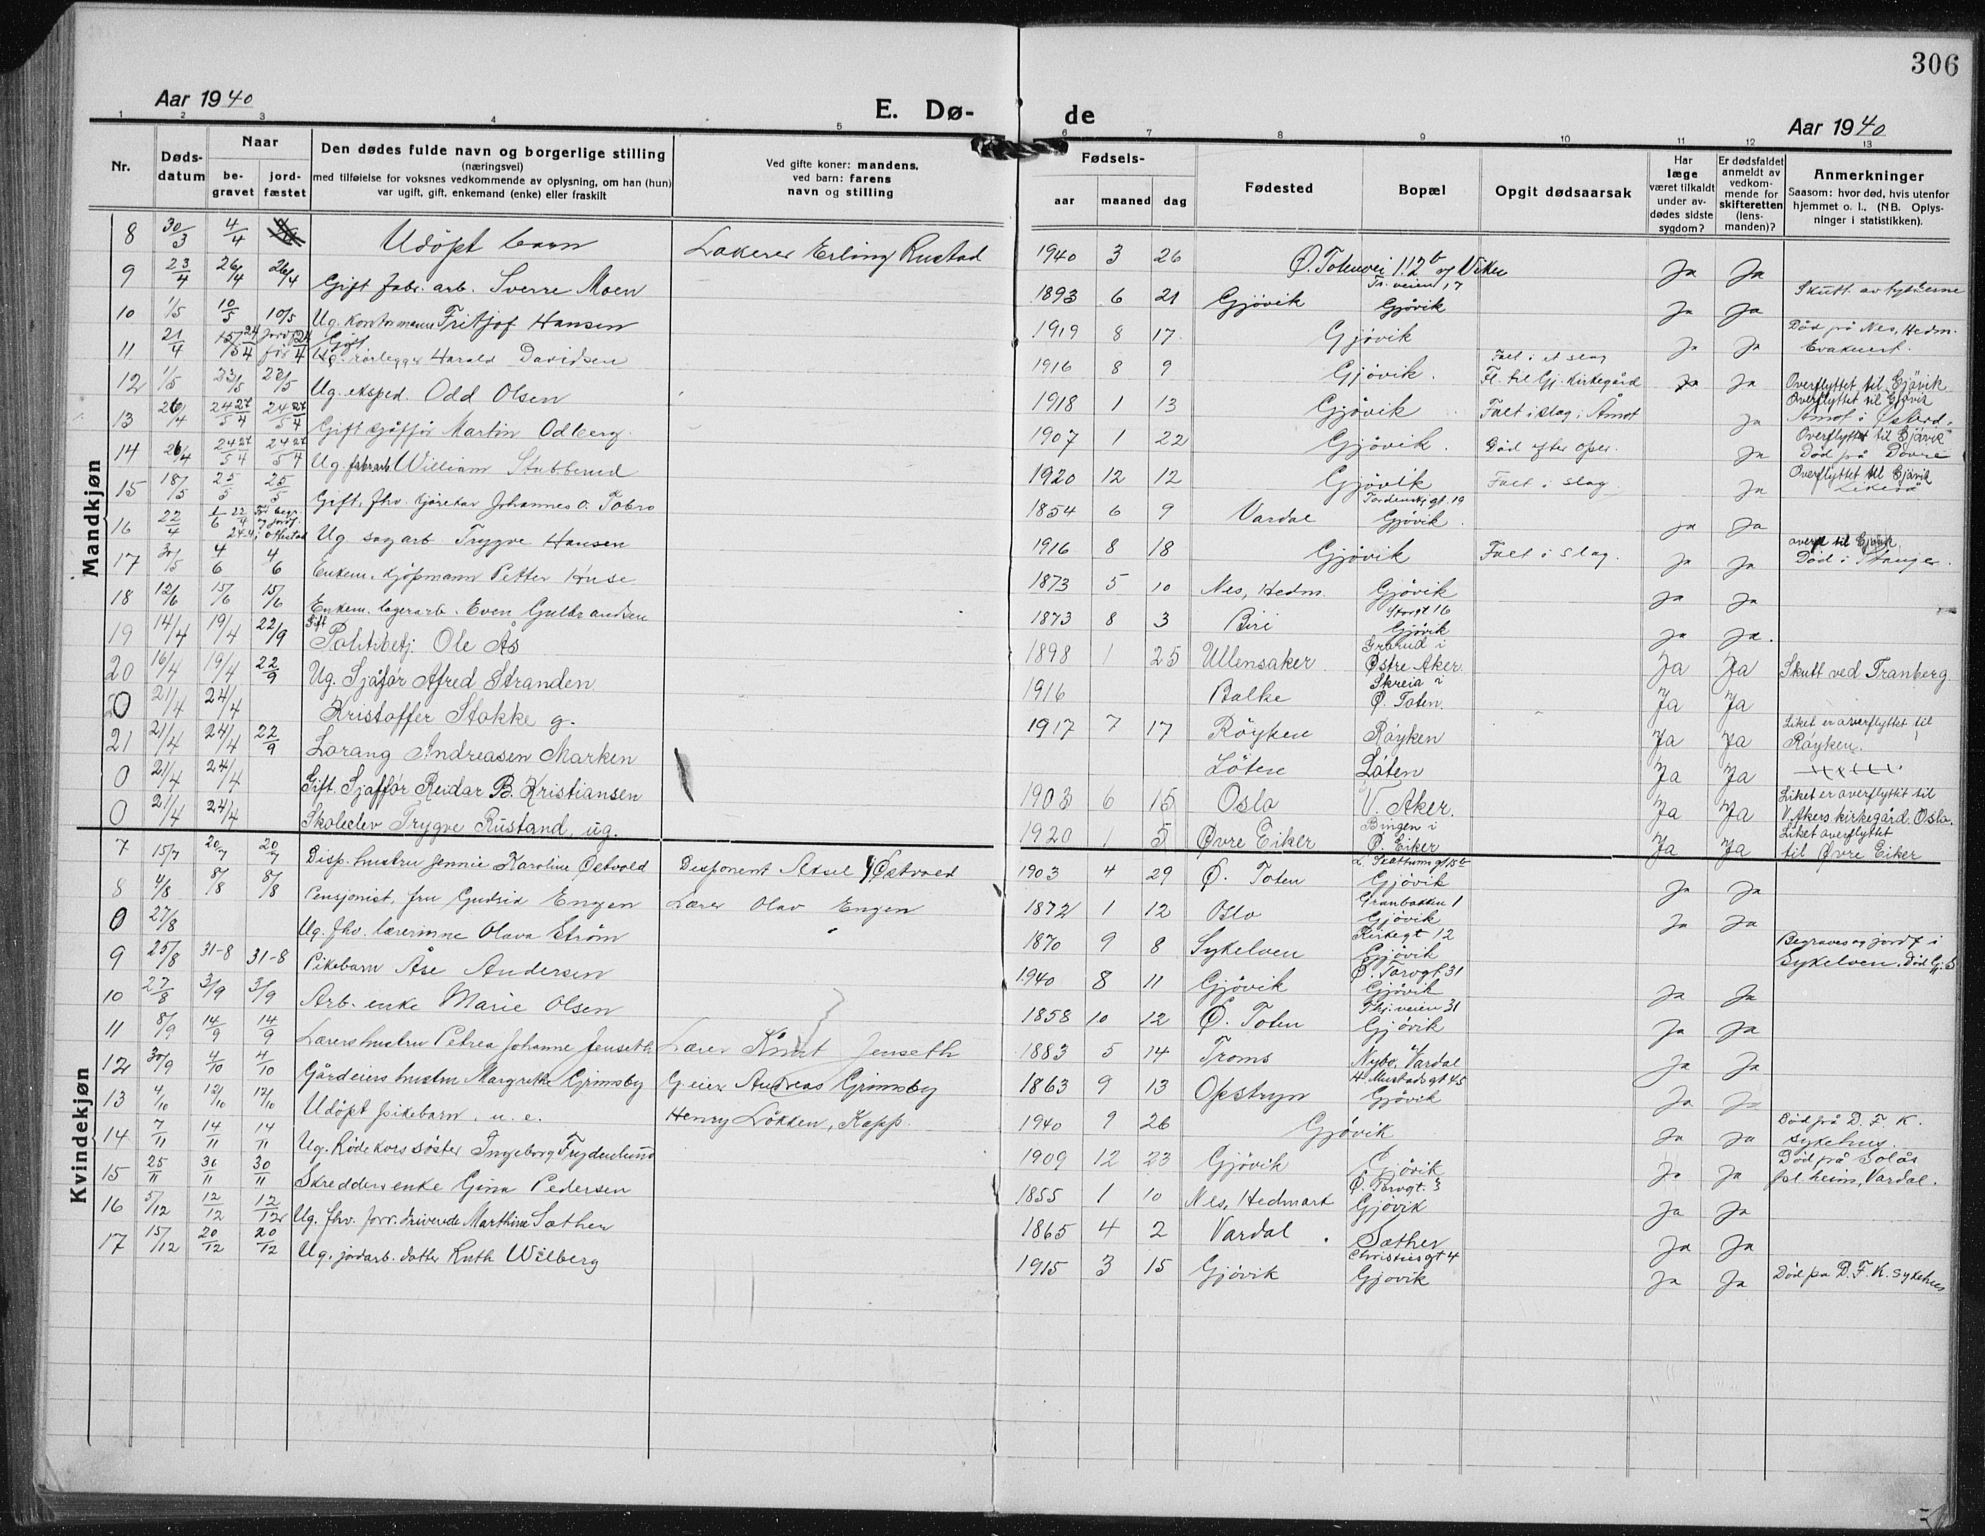 306
Aar 1940
E. Dø-
de
Aar 1940
1 2 3 4 5 6 7 8 9 10 11 12 13
Nr. Døds-datum Naar be-gravet jord-fæstet Den dødes fulde navn og borgerlige stilling (næringsvei) med tilføielse for voksnes vedkommende av oplysning, om han (hun) var ugift, gift, enkemand (enke) eller fraskilt Ved gifte koner: mandens, ved barn: farens navn og stilling Fødsels- aar maaned dag Fødested Bopæl Opgit dødsaarsak Har læge været tilkaldt under av-dødes sidste sygdom? Er dødsfaldet anmeldt av vedkom-mende for skifteretten (lens-manden)? Anmerkninger Saasom: hvor død, hvis utenfor hjemmet o. l., (NB. Oplys-ninger i statistikken).
Mandkjøn
8 30/3 4/4 Udöpt barn Lakerer Erling Rustad 1940 3 26 Ö. Totenvei 112 b Ja Ja
9 23/4 26/4 26/4 Gift fabr. arb. Sverre Moen 1893 6 21 Gjövik Gjövik Ja Ja Skutt av tyskerne
10 1/5 10/5 10/5 Ug. Kontormann Fritjof Hansen 1919 8 17 Gjövik Ja Ja Död på Nes, Hedm. Evakuert.
11 21/4 15/5 24/4 24/4 Gift rörlegger Harald Davidsen 1916 8 9 Gjövik. Falt i et slag Fl. til Gj. Kirkegård Ja Ja Overflyttet til Gjövik
12 1/5 23/5 22/5 Ug. eksped. Odd Olsen 1918 1 13 Gjövik Falt i slag i Åmot Ja Overflyttet til Gjövik Åmot i Österd.
13 26/4 24/5 27/4 24/5 27/4 Gift sjåffør Martin Odberg 1907 1 22 Gjövik. Död efter oper. Ja Overflyttet til Gjövik Död på Dovre
14 26/4 24/5 27/4 24/5 27/4 Ug fabrarb William Stubberud 1920 12 12 Gjövik Falt i slag Ja Overflyttet til Gjövik
15 18/5 25/5 25/5 Gift, fhv. kjöretar Johannes O. Tobro 1854 6 9 Vardal Tordenskj gt 19 Gjövik. Ja Ja
16 22/4 1/6 Ug sagarb Trygve Hansen 1916 8 18 Gjövik Falt i slag. Ja Ja overfl til Gjövik. Död i Stange.
17 30/5 4/6 4/6 Enkem. Kjöpmann Petter Huse 1873 5 10 Nes, Hedm. Gjövik Ja Ja
18 12/6 15/6 15/6 Enkem. lagerarb. Even Gulbrandsen 1873 8 3 Biri Storgt 16 Gjövik Ja Ja.
19 14/4 19/4 22/9 Gift Politibetj. Ole Ås 1898 1 25 Ullensaker Grorud i Østre Aker. Ja Ja Skutt ved Tranberg
20 16/4 19/4 22/9 Ug. Sjåfør Alfred Stranden 1916 Balke Skreia i Ø. Toten. Ja Ja
0 21/4 24/4 Kristoffer Stokke g. 1917 7 17 Röyken Röyken Ja Ja Liket er overflyttet til Röyken.
21 21/4 24/4 22/9 Lorang Andreasen Marken Löten Löten Ja Ja
0 21/4 24/4 Gift. Sjåfför Reidar B. Kristiansen 1903 6 15 Oslo V. Aker. Ja Ja Liket er overflyttet til V. Akers kirkegård. Oslo.
0 21/4 24/4 Skoleelev Trygve Rustand, ug. 1920 1 5 Øvre Eiker Bingen i Ø. Eiker Ja Ja Liket overflyttet til Øvre Eiker
Kvindekjøn
7 15/7 20/7 20/7 Disp. hustru Jennie Karoline Østvold Disponent Østvold 1903 4 29 Ö. Toten Gjövik Ja Ja
8 4/8 8/8 8/8 Pensjonist, fru Gudrid Engen Lærer Olav Engen 1872 1 12 Oslo Granbakken 1 Gjövik Ja Ja
0 27/8 Ug. fhv. lærerinne Olava Ström 1870 9 8 Sykelven Kirkegt 12 Gjövik Begraves og jordf i Sykelven. Död Gj. S
9 25/8 31-8 31-8 Pikebarn Åse Andersen 1940 8 11 Gjövik Ö. Torvgt. 31 Gjövik Ja Ja
10 27/8 3/9 3/9 Arb. enke Marie Olsen 1858 10 12 Ö. Toten Gjövik Ja Ja
11 8/9 14/9 14/9 Lærershustru Petrea Johanne Jenseth Lærer Knut Jenseth 1883 5 14 Troms Nybo, Vardal Ja Ja
12 30/9 4/10 4/10 Gårdeiershustru Margrethe Grimsby G.eier Andreas Grimsby 1863 9 13 Opstryn H Mustadsgt 45 Gjövik Ja Ja
13 4/10 12/10 12/10 Udöpt pikebarn. u. e. Henry Lökken, Kapp. 1940 9 26 Gjövik Ja Ja Död på D. F. K. sykehus.
14 7/11 14/11 14/11 Ug. Rödekorssöster Ingeborg Frydenlund 1909 12 23 Gjövik Gjövik Ja Ja Död på Solås pl heim, Vardal.
15 25/11 30/11 30/11 Skredderenke Gina Pedersen 1855 1 10 Nes, Hedmark Ö. Torvgt. 3 Gjövik Ja Ja
16 5/12 12/12 12/12 Ug. fhv. forr. drivende Marthine Sæther 1865 4 2 Vardal. Sæther Ja Ja
17 15/12 20/12 20/12 Ug. jordarb. datter Ruth Wilberg 1915 3 15 Gjövik Christiesgt 4 Gjövik Ja Ja Död på D. F. K. sykehus